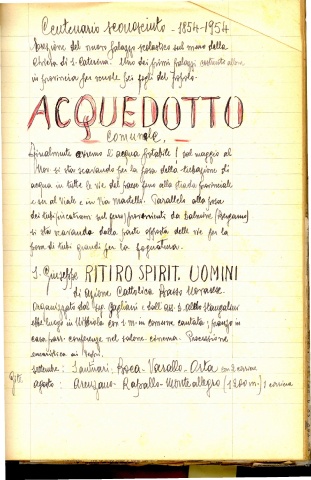 Centenario sconosciuto - 1854-1954
Erezione del nuovo palazzo scolastico sul muro della
Chiesa di S. Caterina. Uno dei primi palazzi costruito allora
in provincia per scuole dei figli del popolo.
ACQUEDOTTO
Comunale.
Finalmente avremo l'acqua potabile! dal maggio al
Nov si sta scavando per la posa della tubazione di
acqua in tutte le vie del paese fino alla strada provinciale
e su al Viale e in Via Madelli. Parallelo alla posa
dei tubi provenienti da Dalmine (Bergamo)
si sta scavando dalla parte opposta delle vie per la
posa di tubi grandi per la fognatura.
S. Giuseppe RITIRO SPIRIT. UOMINI
di Azione Cattolica Basso
Organizzato dal e dall'
luogo in con S. M. in comune cantata; pranzo in
casa parr. conferenze nel salone cinema. Processione
eucaristica ai Vespri.
Gite settembre: Santuari - Boca - Varallo - Orta con 2 corriere
agosto: Arenzano - Rapallo - Montallegro (1200 m) 1 corriera